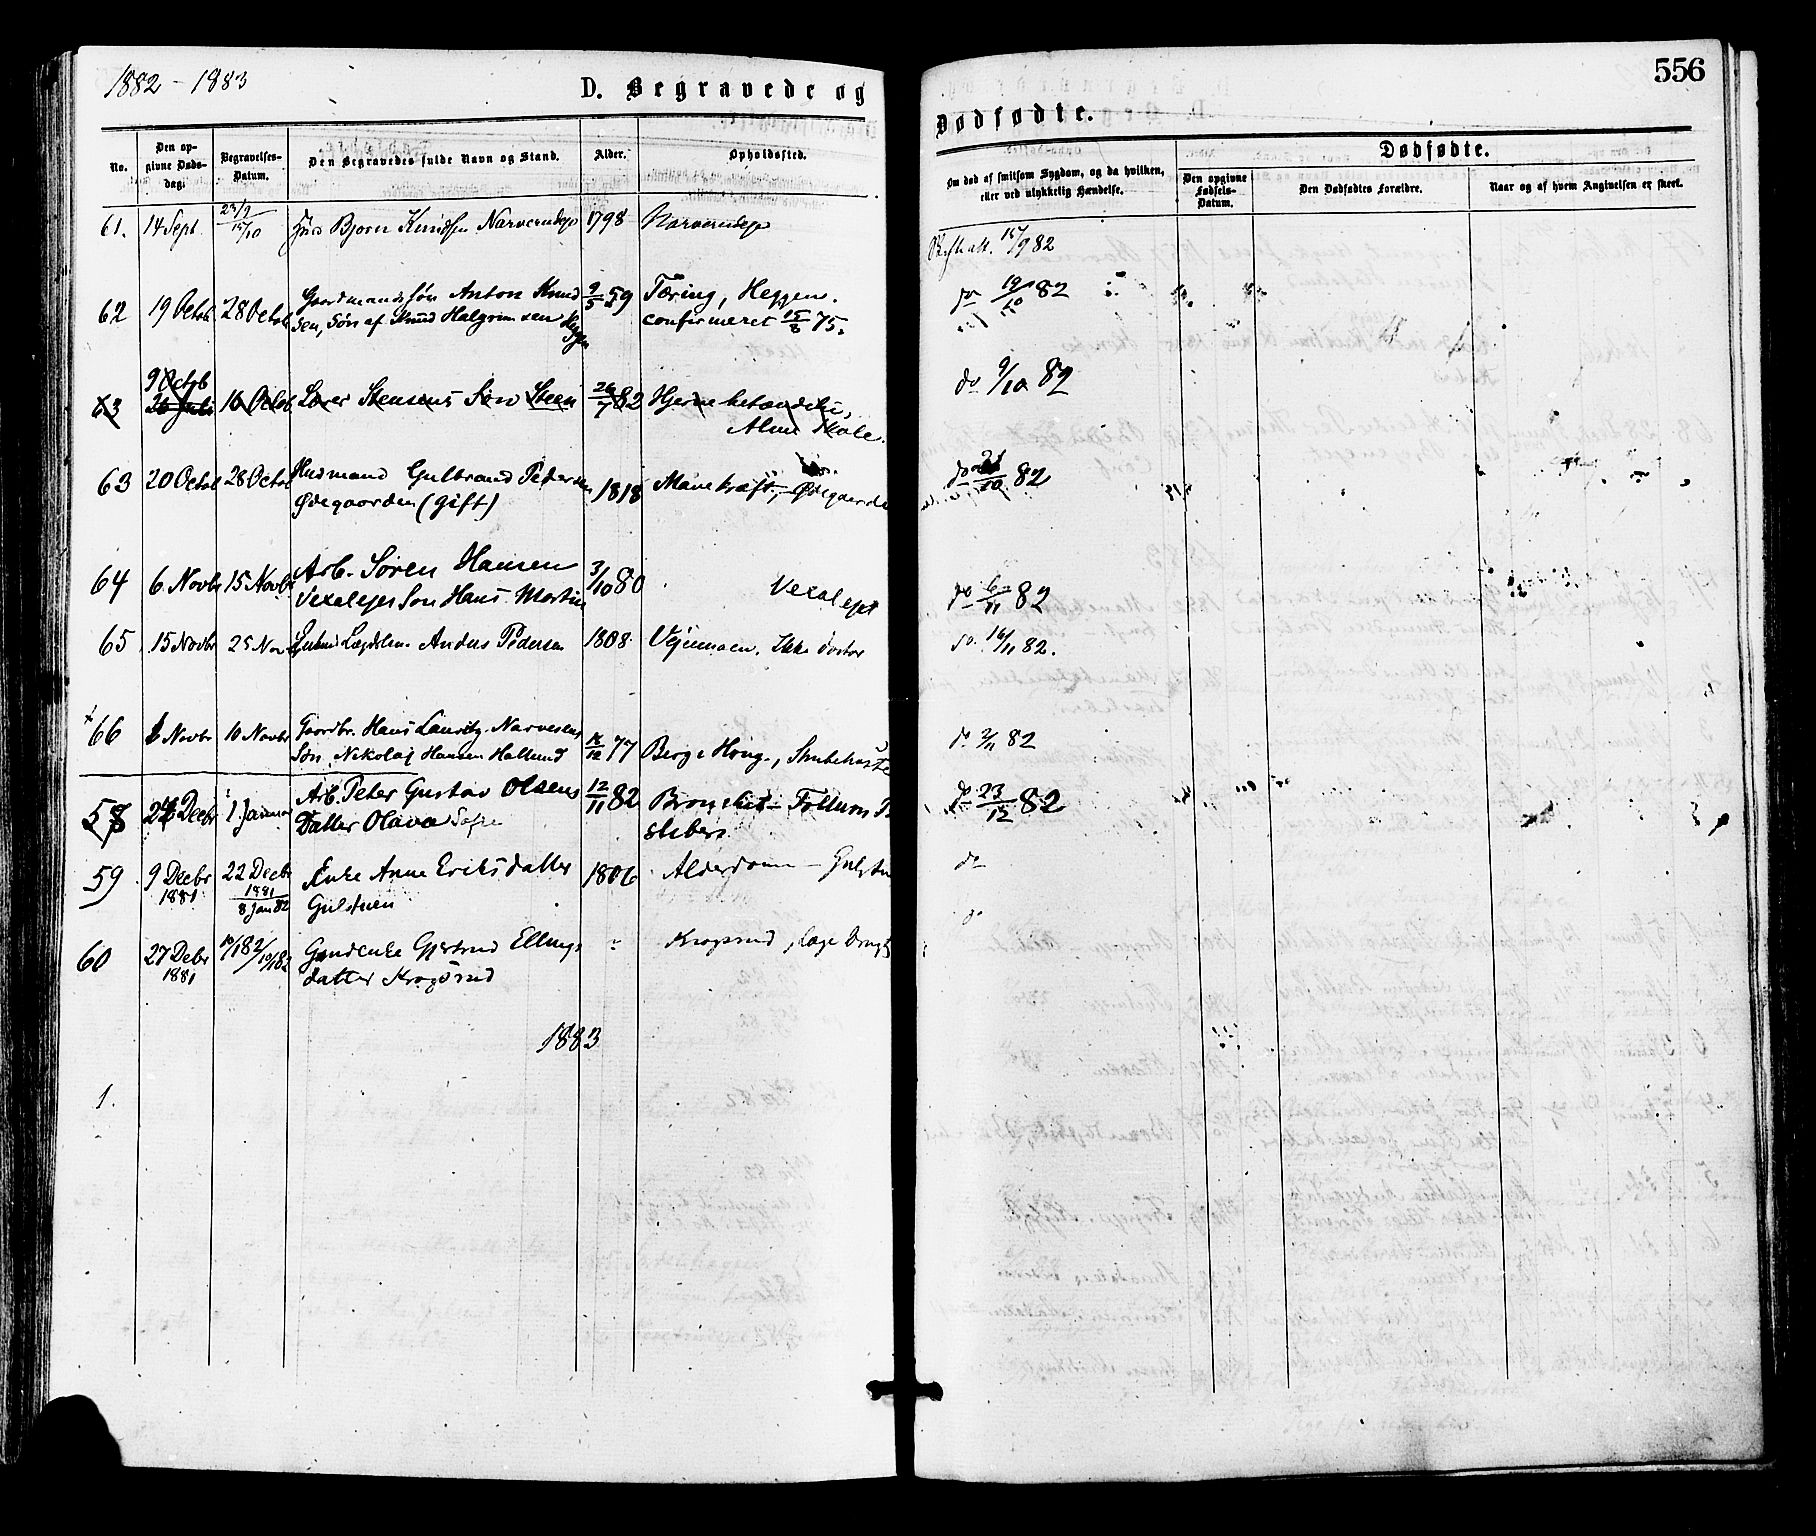 1882 - 1883
D. Begravede og
Dødfødte.
556
No.
Den op-
givne Døds-
dag.
Begravelses-
Datum.
Den Begravedes fulde Navn og Stand.
Alder.
Opholdssted.
Om død af smitsom Sygdom, og da hvilken,
eller ved ulykkelig Hændelse.
Dødfødte.
Den opgivne
Fødsels-
Datum.
Den Dødfødtes Forældre.
Naar og af hvem Angivelsen er skeet.
61. 14 Sept. 23/9 15/10 Bjørn Knudsen 1798 15/9 82
62 19 Octob 28 Octob Gaardmandssøn Anton Knud 9/5 59 Tæring, Heggen. do 19/10 82
sen, Søn af Knud Halgrimsen confirmeret 15/8 75.
9 Octob
63 26 Juli 16 Octob Lærer Steensens Søn Steen 26/7 82 Hjernebetændelse, do 9/10 82
Alme Skole.
63 20 Octob 28 Octob Husmand Gulbrand Pedersen 1818 Mavekræft, Ødegaarden do 21/10 82
Ødegaarden (gift)
64 6 Novbr 15 Novbr Arb. Søren Hansen 3/10 80 Vexalejet do 6/11 82
Vexalejet Søn Hans Martin
65 15 Novbr 25 Nov Anders Pedersen 1808 Ikke doctor do. 16/11 82.
66 Novbr 10 Novbr Gaardbr. Hans Lauritz Narvesens
Søn Nikolaj Hansen 77 Berg i Hong., Strubehoste do 2/11 82
58 24 Decbr 1 Januar Arb. Peter Gustav Olsens 12/11 82 Bronchit - Follum do 23/12 82
Datter Olava
59 9 Decbr 22 Decbr Enke Anne Eriksdatter 1806 Alderdom - do
1881 1881
8 Jan 82 Gulstuen do
60 27 Decbr 10/1 82 10/1 82 Gjertrud Ellings "
1881 datter Kragsrud
1883
1.